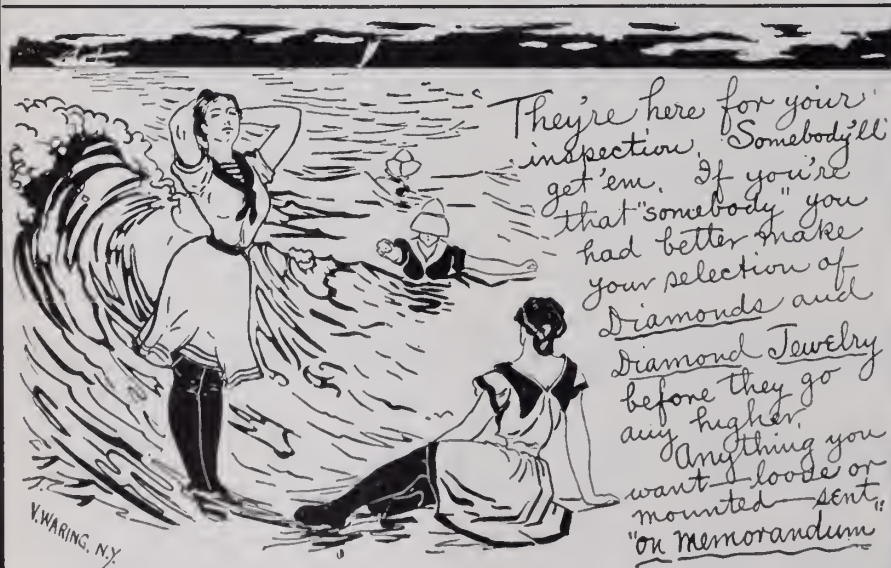 They're here for your
inspection. Somebody'll
get 'em. If you're
that "somebody" you
had better make
your selection of
Diamonds and
Diamond Jewelry
before they go
any higher.
Anything you
want—loose or
mounted—sent,
"on Memorandum"
V. WARING, N.Y.